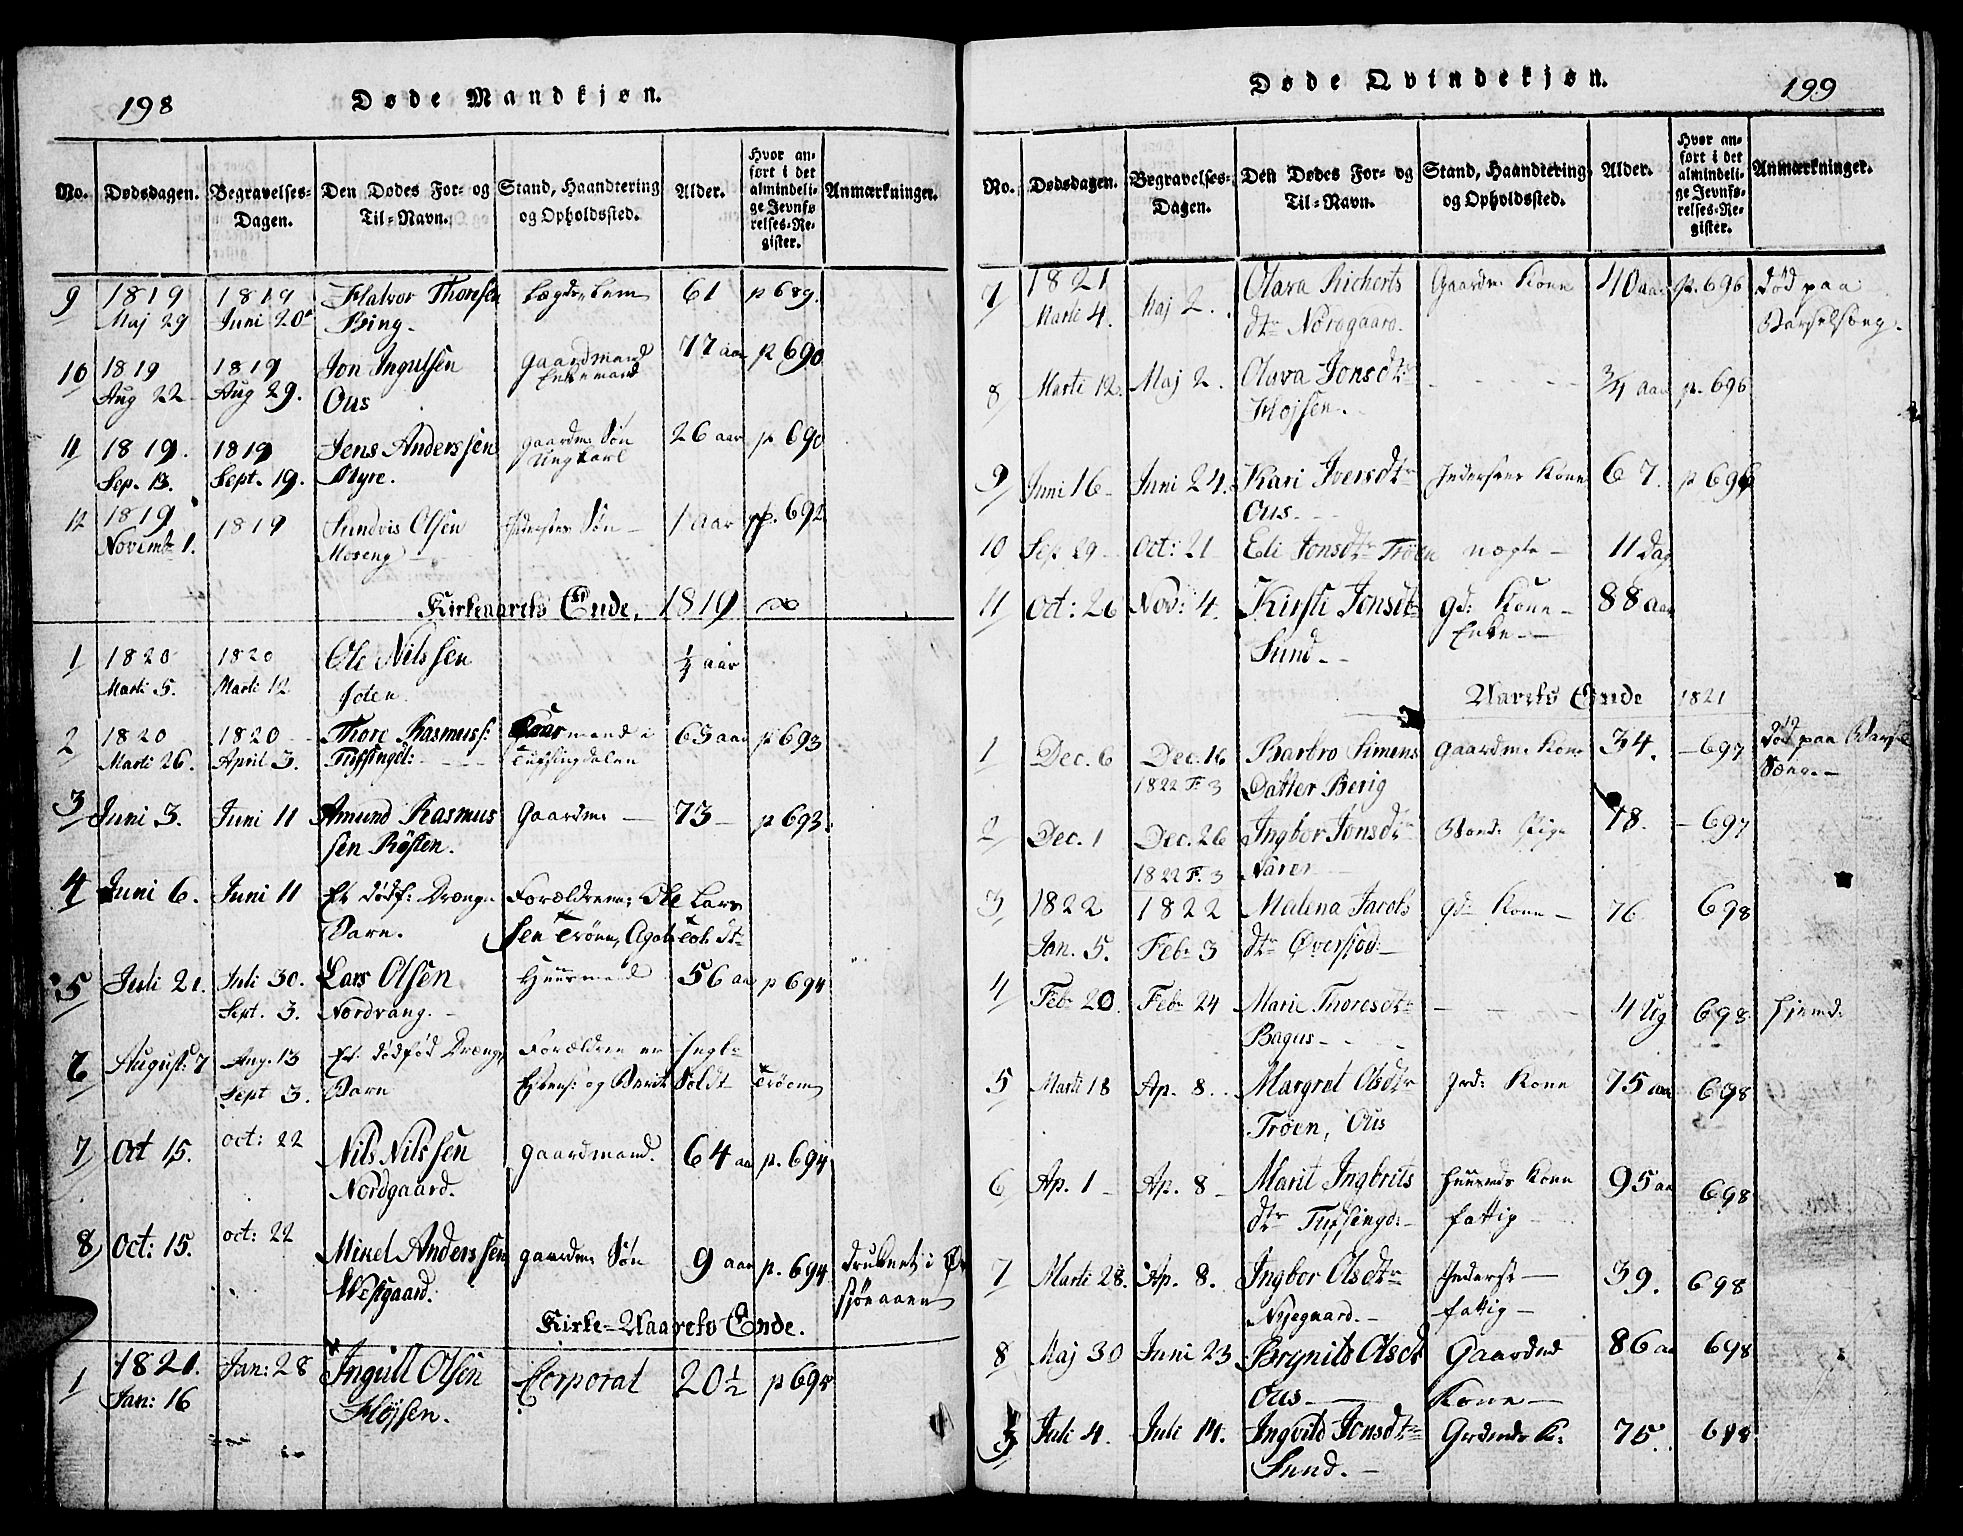 198
Døde Mandkjøn.
No. Dødsdagen. Begravelses-Dagen. Den Dødes For- og Til-Navn. Stand, Haandtering og Opholdssted. Alder. Hvor anført i det almindelige Jevnførelses-Register. Anmærkninger.
9 1819 1819 Halvor Thoresen Lægdslem 61 p 689.
Maj 29 Juni 20 Bing.
10 1819 1819 Jon Ingulfsen Gaardmand 77 aar p 690
Aug 22 Aug 29. Ous Enkemand
11 1819. 1819 Jens Anderssen gaardm: Søn 26 aar p 690
Sep. 13. Sept. 19. Øyre. Ungkarl
12 1819 1819 Olsen Søn 1 aar p. 692
Novemb 1. Moseng
Kirkeaarets Ende. 1819
1 1820 1820 Ole Nilssen 1/4 aar
Marti 5. Marti 12
2 1820 1820 Thore Rasmuss: 65 aar p 693
Marti 26. April 3. Tuffingdl: Tuffingdalen
3 Juni 3. Juni 11 Amund Rasmus Gaardm 73 p 693.
sen Røsten.
4 Juni 6. Juni 11 Et dødf: Drænge Forældrene: Ole Lars
Barn. sen Trøen, dtr
5 Juli 21. Juli 30. Lars Olsen Huusmand 56 aar p 694
Sept. 3. Nordvang.
6 August: 7 Aug. 13 Et dødfød Drænge Forældre er Ingb
Sept 3. Barn Estens: og Berit Troen
7 Oct 15. oct: 22 Nils Nilssen gaardmand. 64 aar p. 694
Nordgaard.
8 Oct: 15. oct: 22 Mikel Anderssen gaardm: Søn 9 aar p. 694 druknet i
Westgaard. sjøeaaen
Kirke-Aarets Ende.
1 1821. Jan: 28 Ingull Olsen Corporal 20 1/2 p 695
Jan: 16 Fløjsen.
Døde Qvindekjøn.
199
No. Dødsdagen. Begravelses-Dagen. Den Dødes For- og Til-Navn. Stand, Haandtering og Opholdssted. Alder. Hvor anført i det almindelige Jevnførelses-Register. Anmærkninger.
7 1821 Maj 2. Olava Richerts Gaardm: Kone 40 aar p. 696 død paa
Marti 4. dtr Nordgaard. Barselseng.
8 Marti 12. Maj 2. Olava Jonsdtr 3/4 aar p. 696
Fløjsen.
9 Juni 16 Juni 24. Kari Iversdtr Inderstes Kone 67. p 696
Ous.
10 Sep. 29 Oct: 21 Eli Jonsdtr Trøen uægte 11 Dag
11 Oct: 26 Nov: 4. Kirsti Jonsdtr gd: Kone 88 aar
Sund. Enke
Aarets Ende 1821
1 Dec. 6 Dec. 16 Barbro Simens Gaardm: Kone 34. 697 død paa Barsel
1822 F. 3 Datter Berig Seng.
2 Dec. 1 Dec. 26 Ingbor Jonsdtr Bond: Pige 18. 697
1822 F. 3
3 1822 1822 Malena Jacobs gd: Kone 76 698
Jan. 5. Feb 3 dtr Øversjød:
4 Feb 20. Feb 24 Marie Thoresdtr 4 Ug 698 hjemd:
Bagus
5 Marti 18 Ap. 8. Margret Olsdtr grd: Kone 75 aar 698
Trøen, Ous
6 Ap. 1 Ap. 8 Marit Ingbrits huusmds Kone 95 aar 698
dtr Tuffingd: fattig
7 Marti 28. Ap. 8. Ingbor Olsdtr Inderst 39. 698
Nyegaard. fattig
8 Maj 30 Juni 23 Brynild Olsdt Gaardmd 86 aar 698
Ous Kone
9 Juli 4. Juli 14. Ingvild Jonsdtr Grdmds K: 75. 698
Sund.